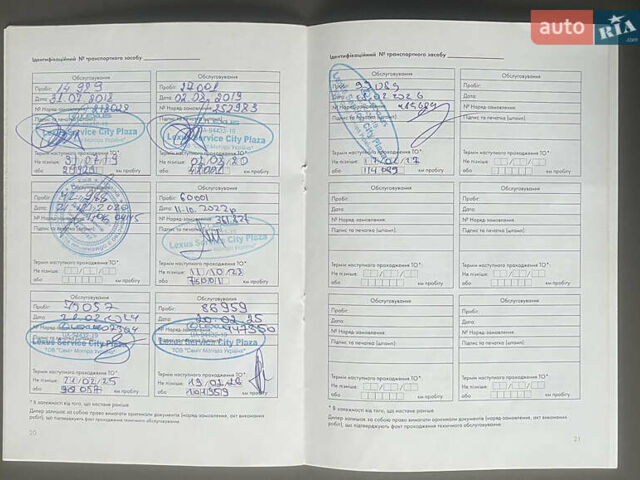 auto RIA .com
Ідентифікаційний № транспортного засобу
Обслуговування
Пробіг: 14 989
Дата: 31.07.2018
№ Наряд-замовлення
Підпис та печатка
Lexus Service City Plaza
Термін наступного проходження ТО*
Не пізніше: 31.07.19
або км пробігу
Обслуговування
Пробіг: 27001
Дата: 02.03.2019
№ Наряд-замовлення 252983
Підпис та печатка
Lexus Service City Plaza
Термін наступного проходження ТО*
Не пізніше: 02.03.20
або 42001 км пробігу
Обслуговування
Пробіг:
Дата:
№ Наряд
Підпис та печатка
Термін наступного проходження ТО*
Не пізніше:
або км пробігу
Обслуговування
Пробіг: 60001
Дата: 11.10.2022
№ Наряд-замовлення
Підпис та печатка
Lexus Service City Plaza
Термін наступного проходження ТО*
Не пізніше: 11.10.23
або 75001 км пробігу
Обслуговування
Пробіг: 79057
Дата:
№ Наряд-замовлення
Lexus Service City Plaza
ТОВ "Сент Моторз Україна"
Термін наступного проходження ТО*
Не пізніше: 21/02/25
або км пробігу
Обслуговування
Пробіг: 86959
Дата: 20.02.25
№ Наряд-замовлення
Lexus Service City Plaza
ТОВ "Сент Моторз Україна"
Термін наступного проходження ТО*
Не пізніше: 19.02.26
або 101959 км пробігу
* В залежності від того, що настане раніше
Дилер залишає за собою право вимагати оригінали документів (наряд-замовлення, акт виконаних
робіт), що підтверджують факт проходження технічного обслуговування
20
Ідентифікаційний № транспортного засобу
Обслуговування
Пробіг: 99089
Дата:
№ Наряд-замовлення
Підпис та печатка (штамп)
Lexus Service City Plaza
Термін наступного проходження ТО*
Не пізніше: 17/02/27
або 114089 км пробігу
Обслуговування
Пробіг:
Дата:
№ Наряд-замовлення:
Підпис та печатка (штамп):
Термін наступного проходження ТО*
Не пізніше:
або км пробігу
Обслуговування
Пробіг:
Дата:
№ Наряд-замовлення:
Підпис та печатка (штамп):
Термін наступного проходження ТО*
Не пізніше:
або км пробігу
Обслуговування
Пробіг:
Дата:
№ Наряд-замовлення:
Підпис та печатка (штамп):
Термін наступного проходження ТО*
Не пізніше:
або км пробігу
Обслуговування
Пробіг:
Дата:
№ Наряд-замовлення:
Підпис та печатка (штамп):
Термін наступного проходження ТО*
Не пізніше:
або км пробігу
Обслуговування
Пробіг:
Дата:
№ Наряд-замовлення:
Підпис та печатка (штамп):
Термін наступного проходження ТО*
Не пізніше:
або км пробігу
* В залежності від того, що настане раніше
Дилер залишає за собою право вимагати оригінали документів (наряд-замовлення, акт виконаних
робіт), що підтверджують факт проходження технічного обслуговування
21